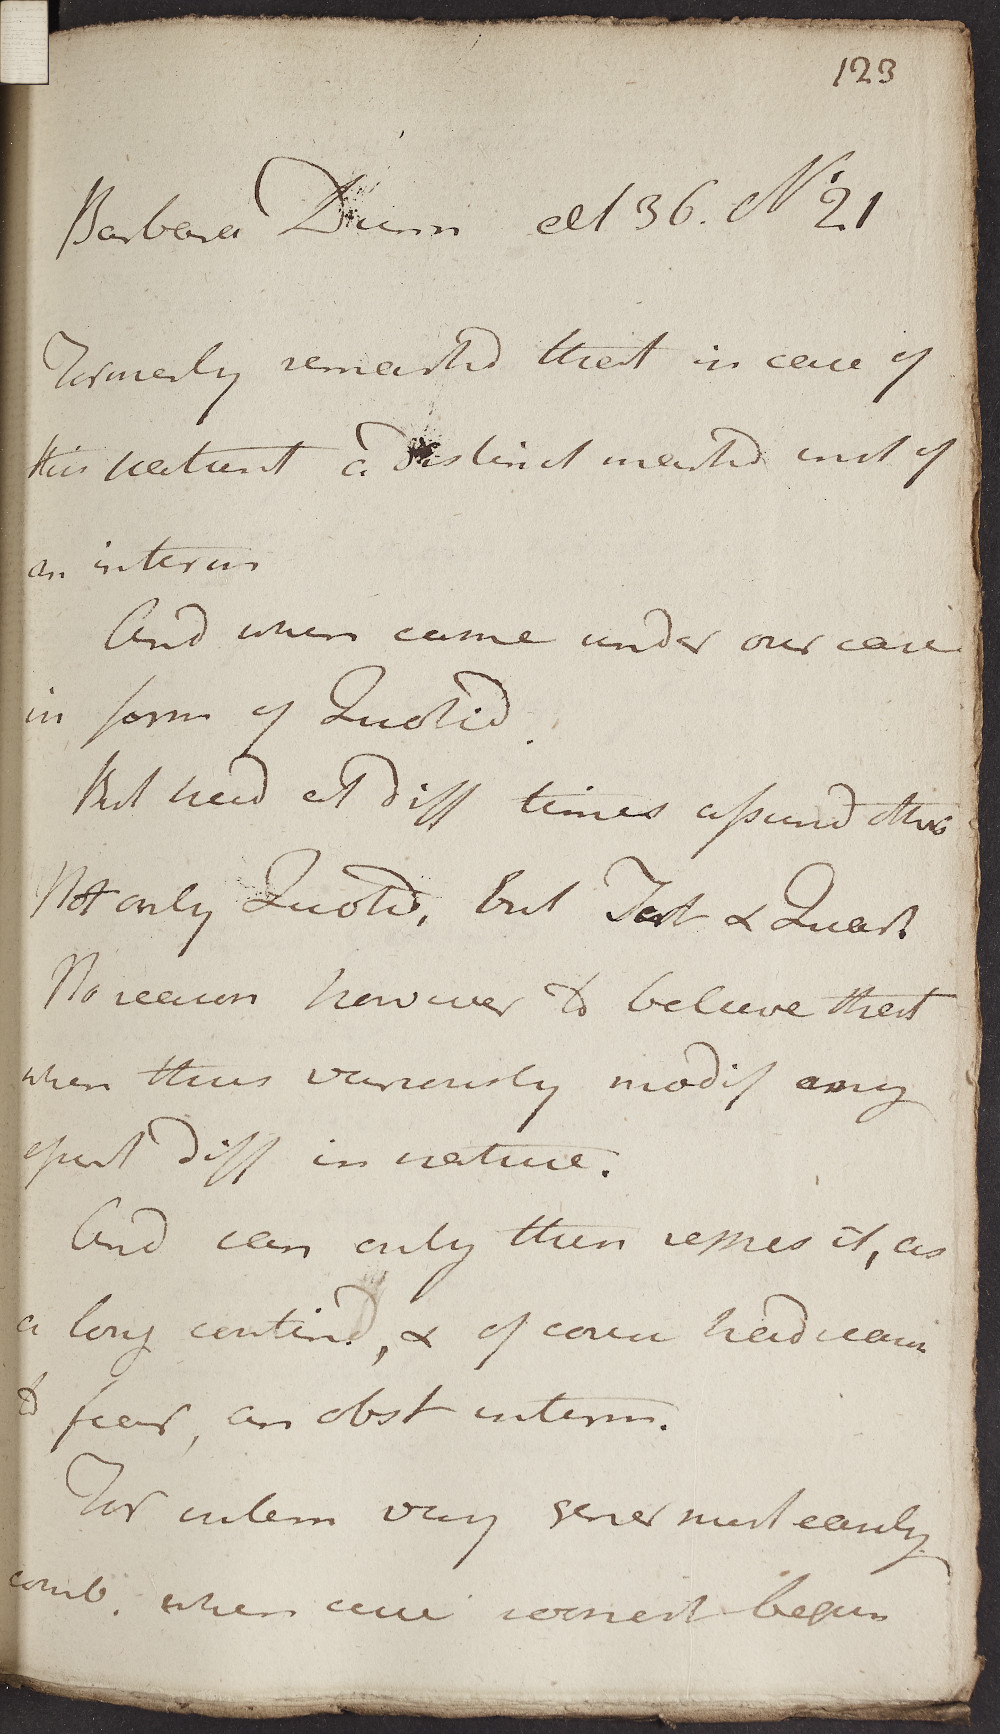 123
Barbara Dunn aet 36. No 21
Formerly remarkd that in case of
this patient a distinct markd inst of
an interm
And when came under our care
in form of Quotid.
But had at diff times assumd others
Not only Quotid, but Tert & Quart.
No reason however to believe that
when thus variously modif any
diff in nature.
And can only then it, as
a long contind, & of course had reason
to fear, an obst interm.
For interm very gener most easily
comb. when case begun